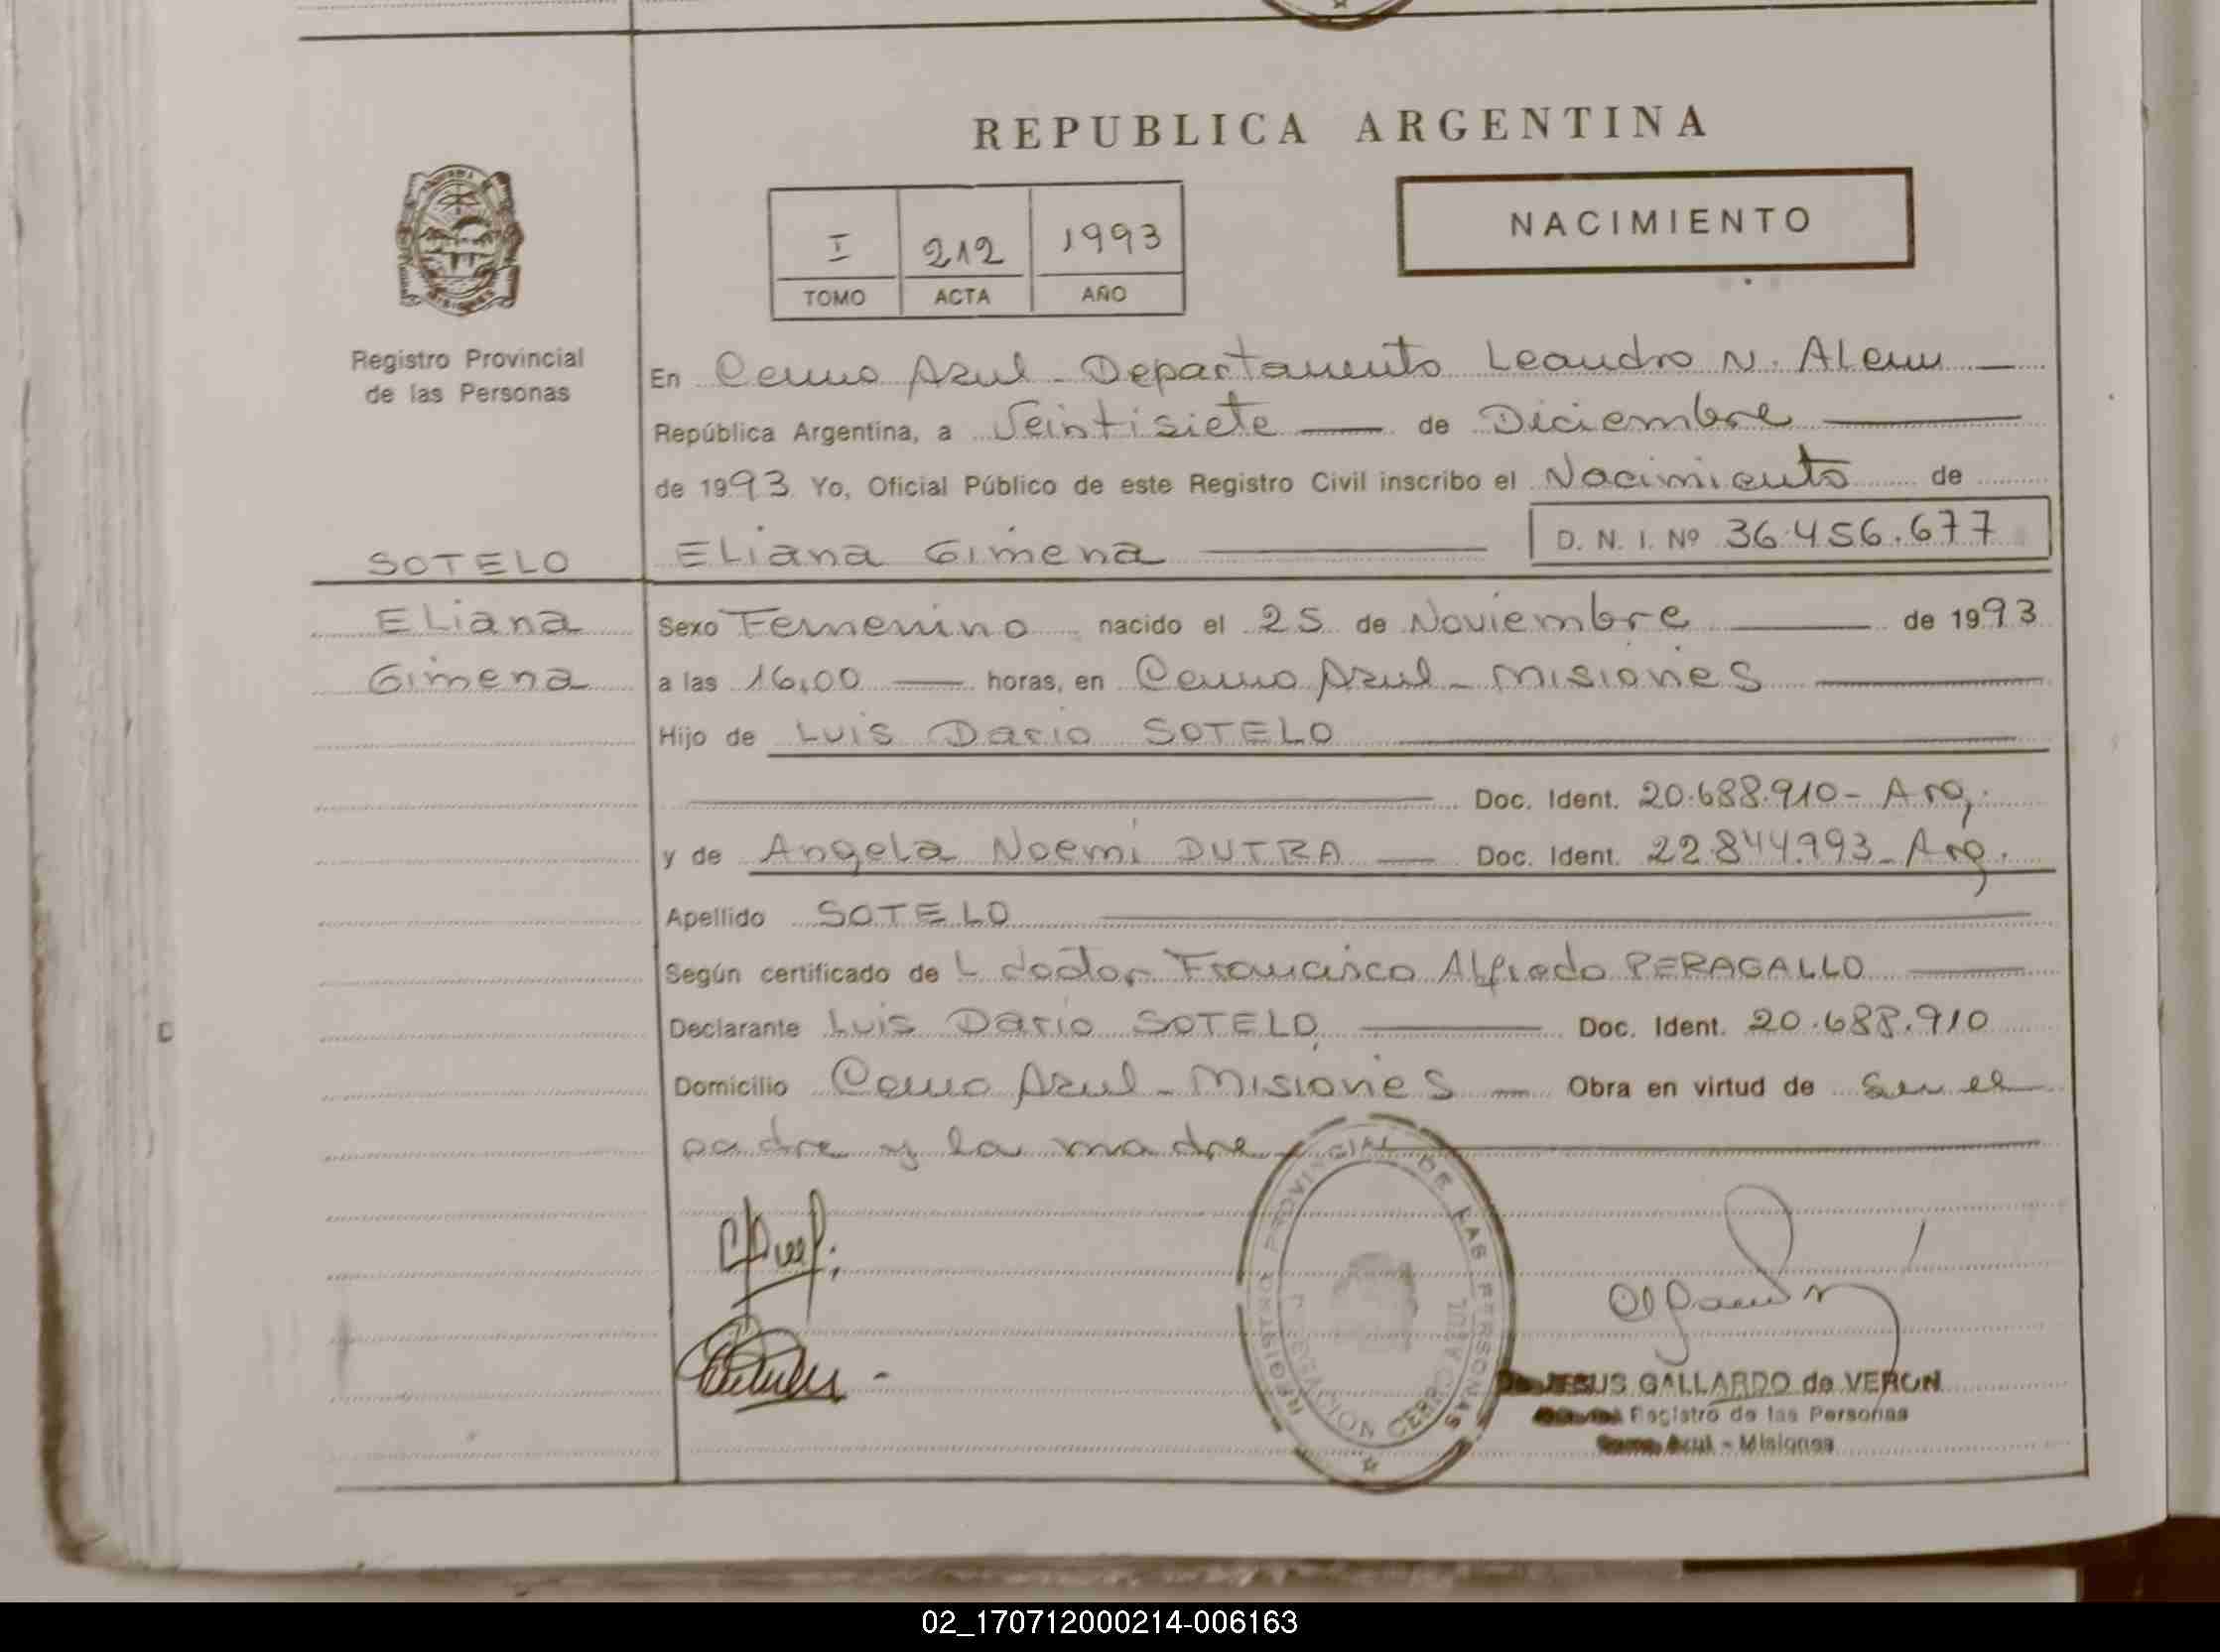 REPUBLICA ARGENTINA
I 212 1993
TOMO ACTA AÑO
NACIMIENTO
Registro Provincial
de las Personas
En Cerro Azul - Departamento Leandro N. ALem
República Argentina, a Veintisiete de Diciembre
de 1993 Yo, Oficial Público de este Registro Civil inscribo el Nacimiento de
SOTELO
ELiana Gimena D. N. I. Nº 36.456.677
ELiana
Gimena
Sexo Femenino nacido el 25 de Noviembre de 1993
a las 16,00 horas, en Cerro Azul - Misiones
Hijo de Luis Dario SOTELO
Doc. Ident. 20.688.910 - Arg.
y de Angela Noemi DUTRA Doc. Ident. 22.844.993 - Arg.
Apellido SOTELO
Según certificado de L doctor Francisco ALfredo PERAGALLO
Declarante Luis Dario SOTELO Doc. Ident. 20.688.910
Domicilio Cerro Azul - Misiones Obra en virtud de Ser el
padre y la madre
REGISTRO PROVINCIAL DE LAS PERSONAS
DELEGACION CERRO AZUL
JESUS GALLARDO de VERON
Registro de las Personas
Azul - Misiones
02_170712000214-006163